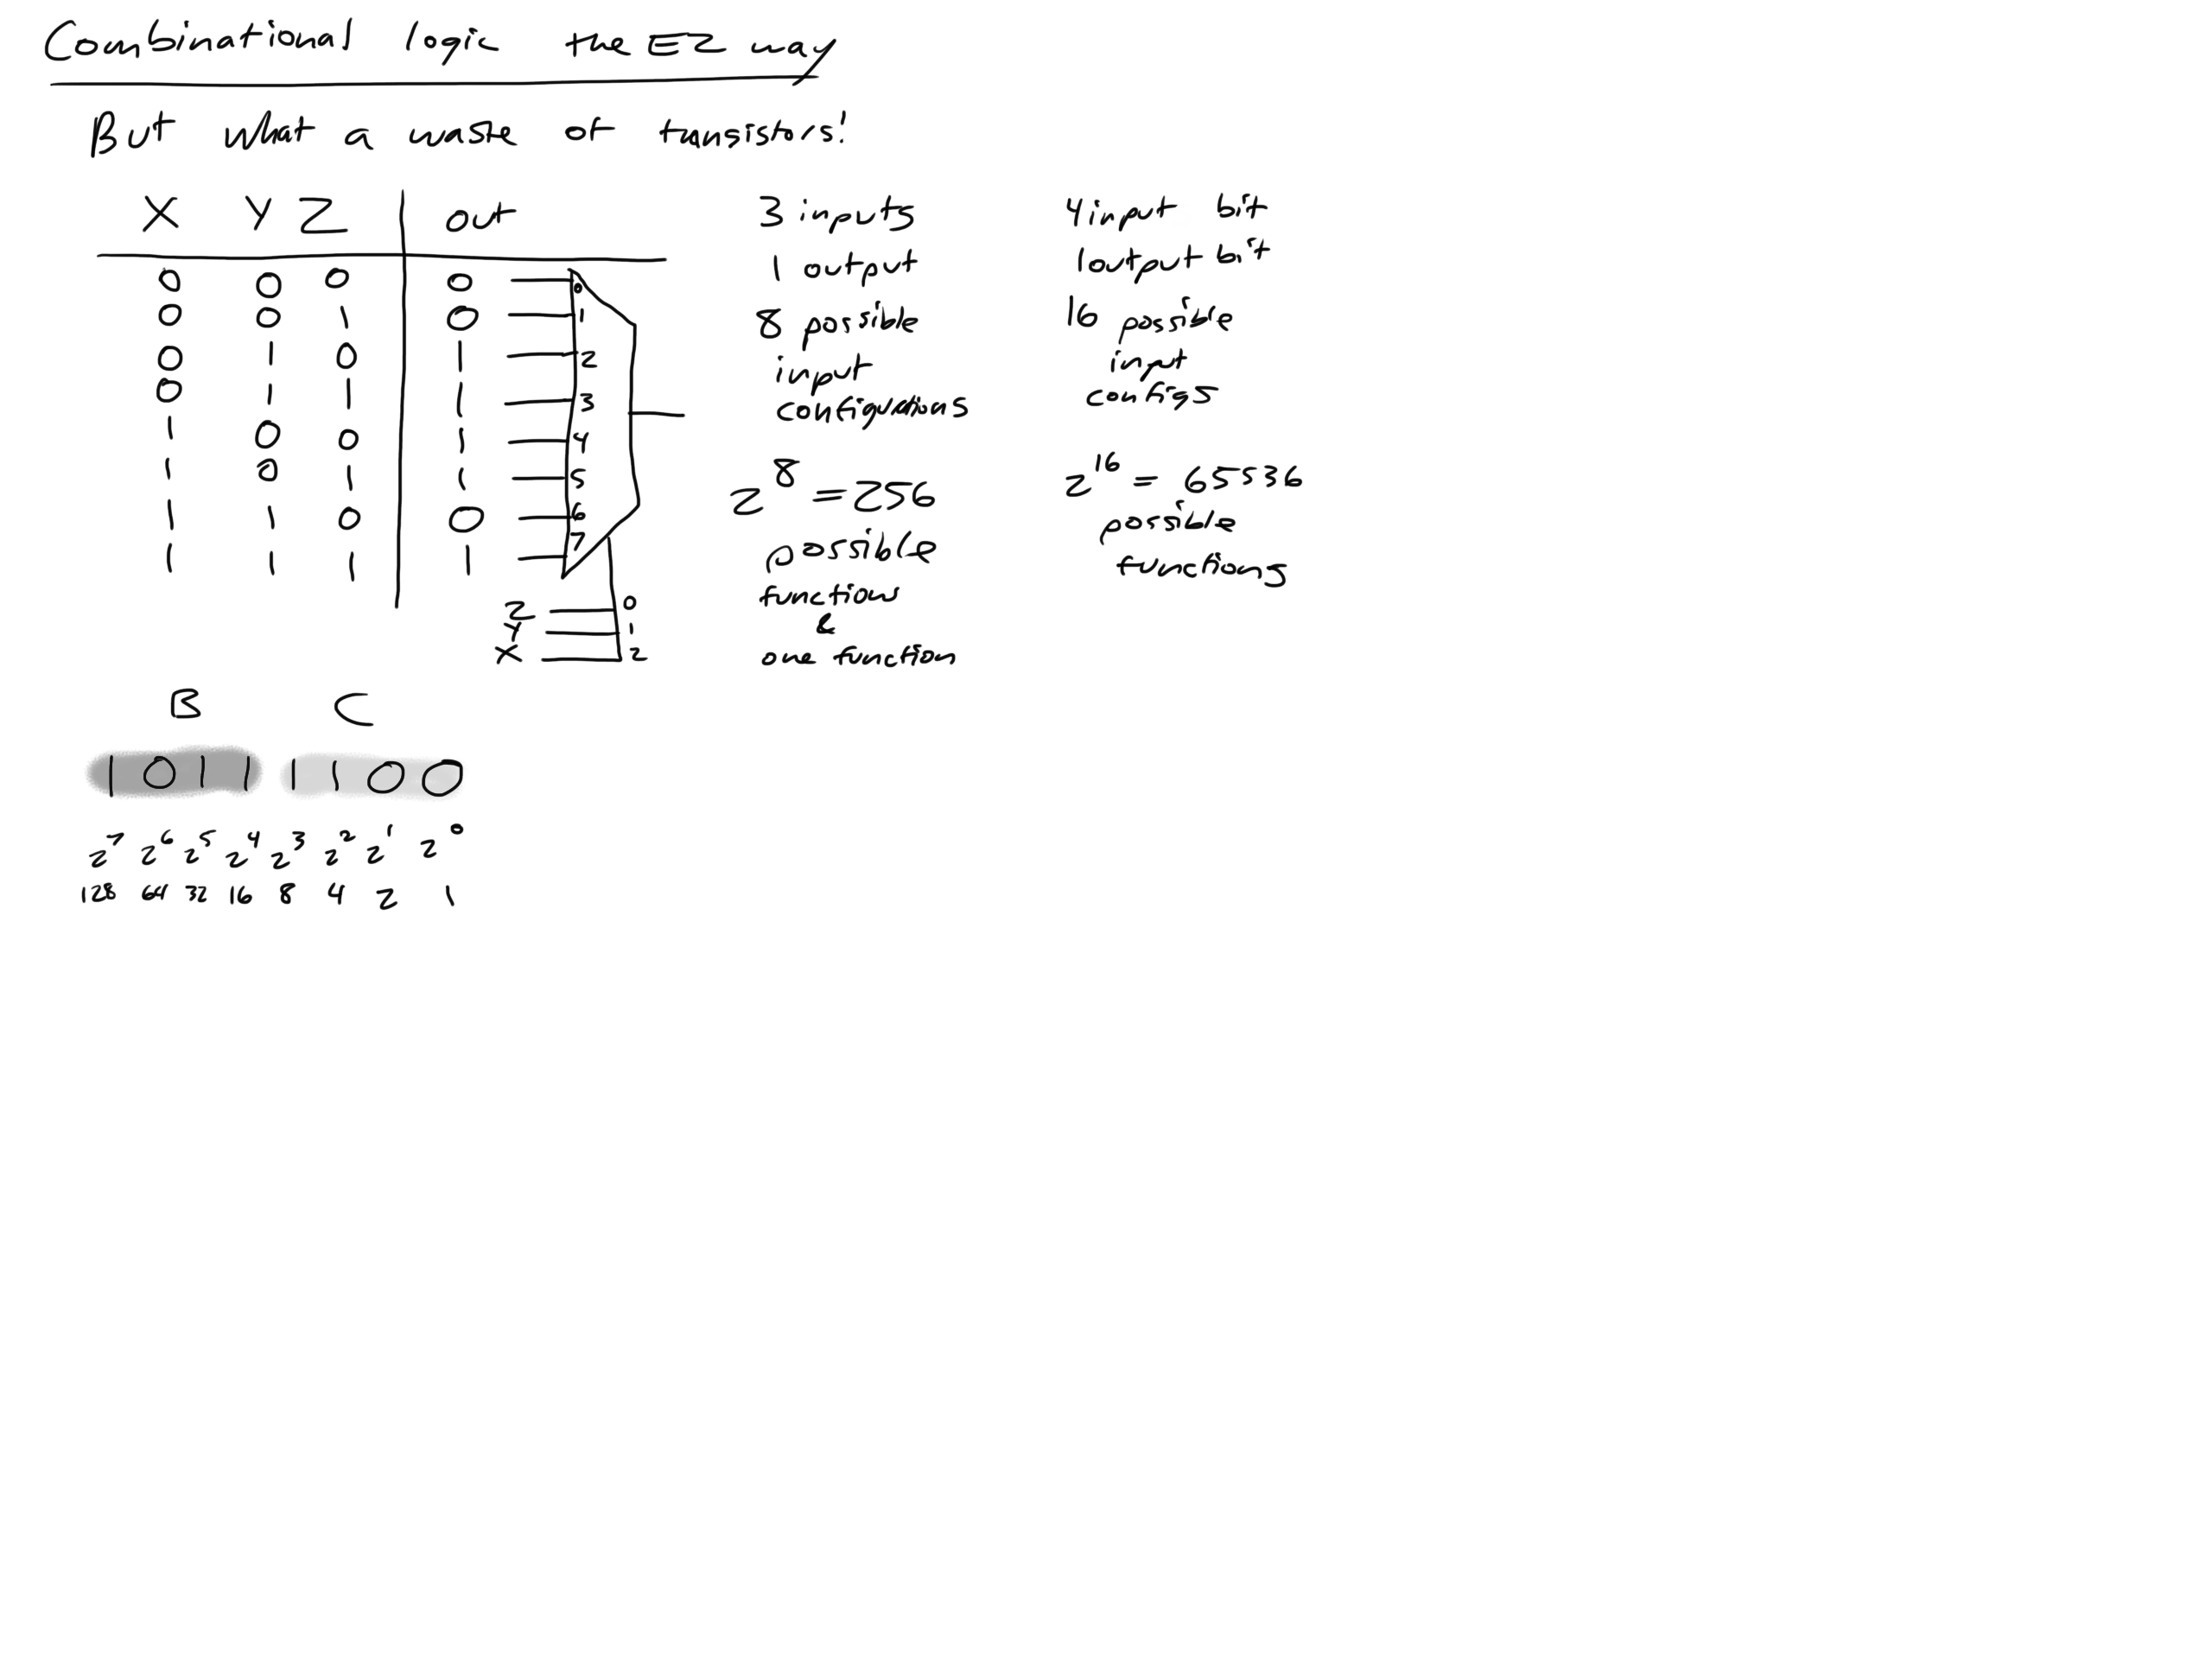 Combinational logic the EZ way
But what a waste of transistors!
X Y Z out
0 0 0 0 0
0 0 1 0 1
0 1 0 1 2
0 1 1 1 3
1 0 0 1 4
1 0 1 1 5
1 1 0 0 6
1 1 1 1 7
Z 0
Y 1
X 2
3 inputs
1 output
8 possible
input
configurations
2^8 = 256
possible
functions
&
one function
4 input bit
1 output bit
16 possible
input
configs
2^16 = 65536
possible
functions
B C
1 0 1 1 1 1 0 0
2^7 2^6 2^5 2^4 2^3 2^2 2^1 2^0
128 64 32 16 8 4 2 1